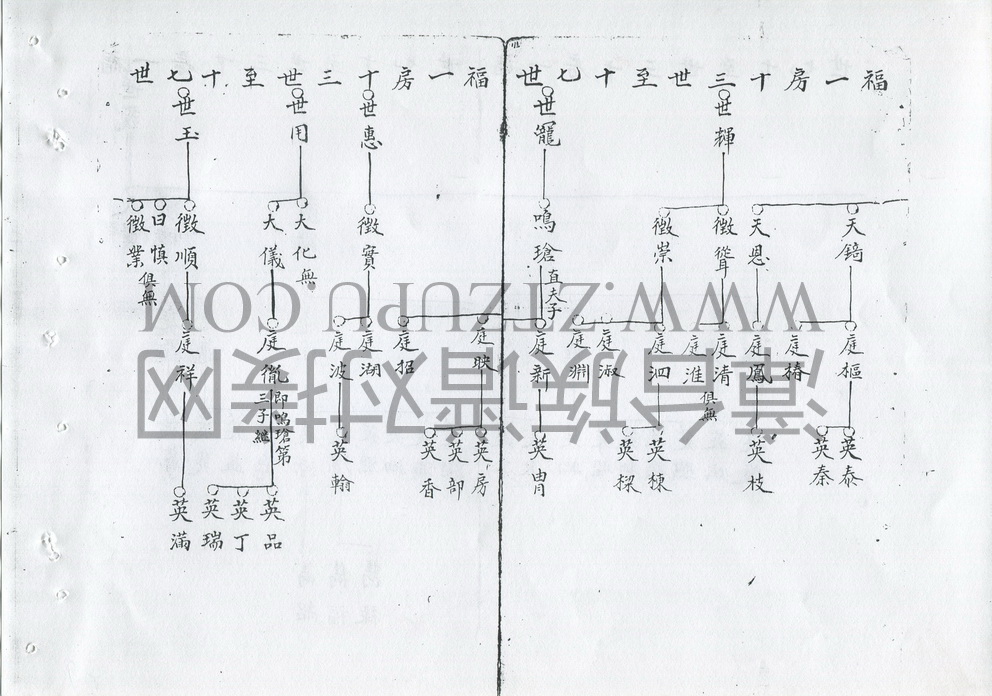 福一房十三世至十七世
世輝
世寵
天錇
天恩
徵聳
徵崇
鳴瑲 直夫子
庭樞
庭椿
庭鳳
庭清
庭淮 俱無
庭泗
庭淑
庭淵
庭新
英泰
英秦
英枝
英棟
英樑
英冑
福一房十三世至十七世
世惠
世用
世玉
徵實
大化 無
大儀
徵順
日慎
徵業 俱無
庭映
庭招
庭湖
庭波
庭胤 即鳴瑲第三子繼
庭祥
英房
英部
英香
英翰
英品
英丁
英瑞
英滿
WWW.ZTZUPU.COM
漳台族谱对接网